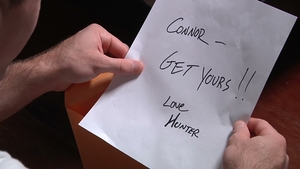 CONNOR –
GET YOURS!!
LOVE
HUNTER